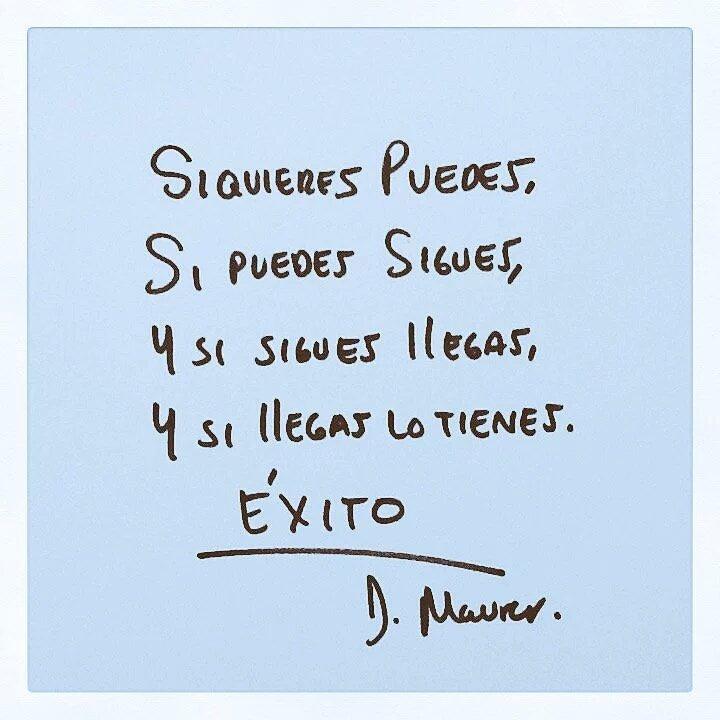 SIQUIERES PUEDES,
SI PUEDES SIGUES,
Y SI SIGUES llEGAS,
Y SI llEGAS LO TIENES.
ÉXITO
D. Maurer.